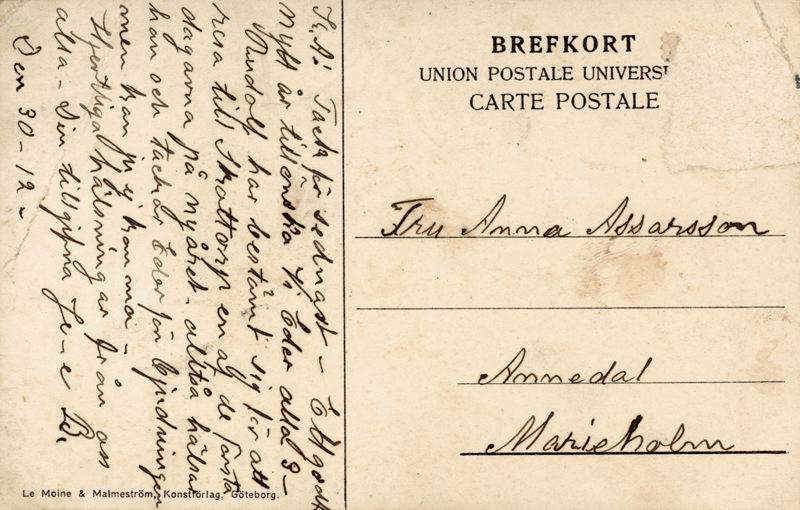 BREFKORT
UNION POSTALE UNIVERS
CARTE POSTALE
Fru Anna Assarsson
Annedal
Marieholm
Tack för sednast – Ett godt
nytt år tillönska Vi Eder alla
Rudolf har bestämt sig för att
resa till Skottorp en af de första
dagarna på nyåret. alltså hälsar
han och tackar Eder för bjudningen
men kan ej
Hjertliga hälsningar från oss
alla – Din tillgifna
Den 30-12
Le Moine & Malmeström, Konstförlag, Göteborg.